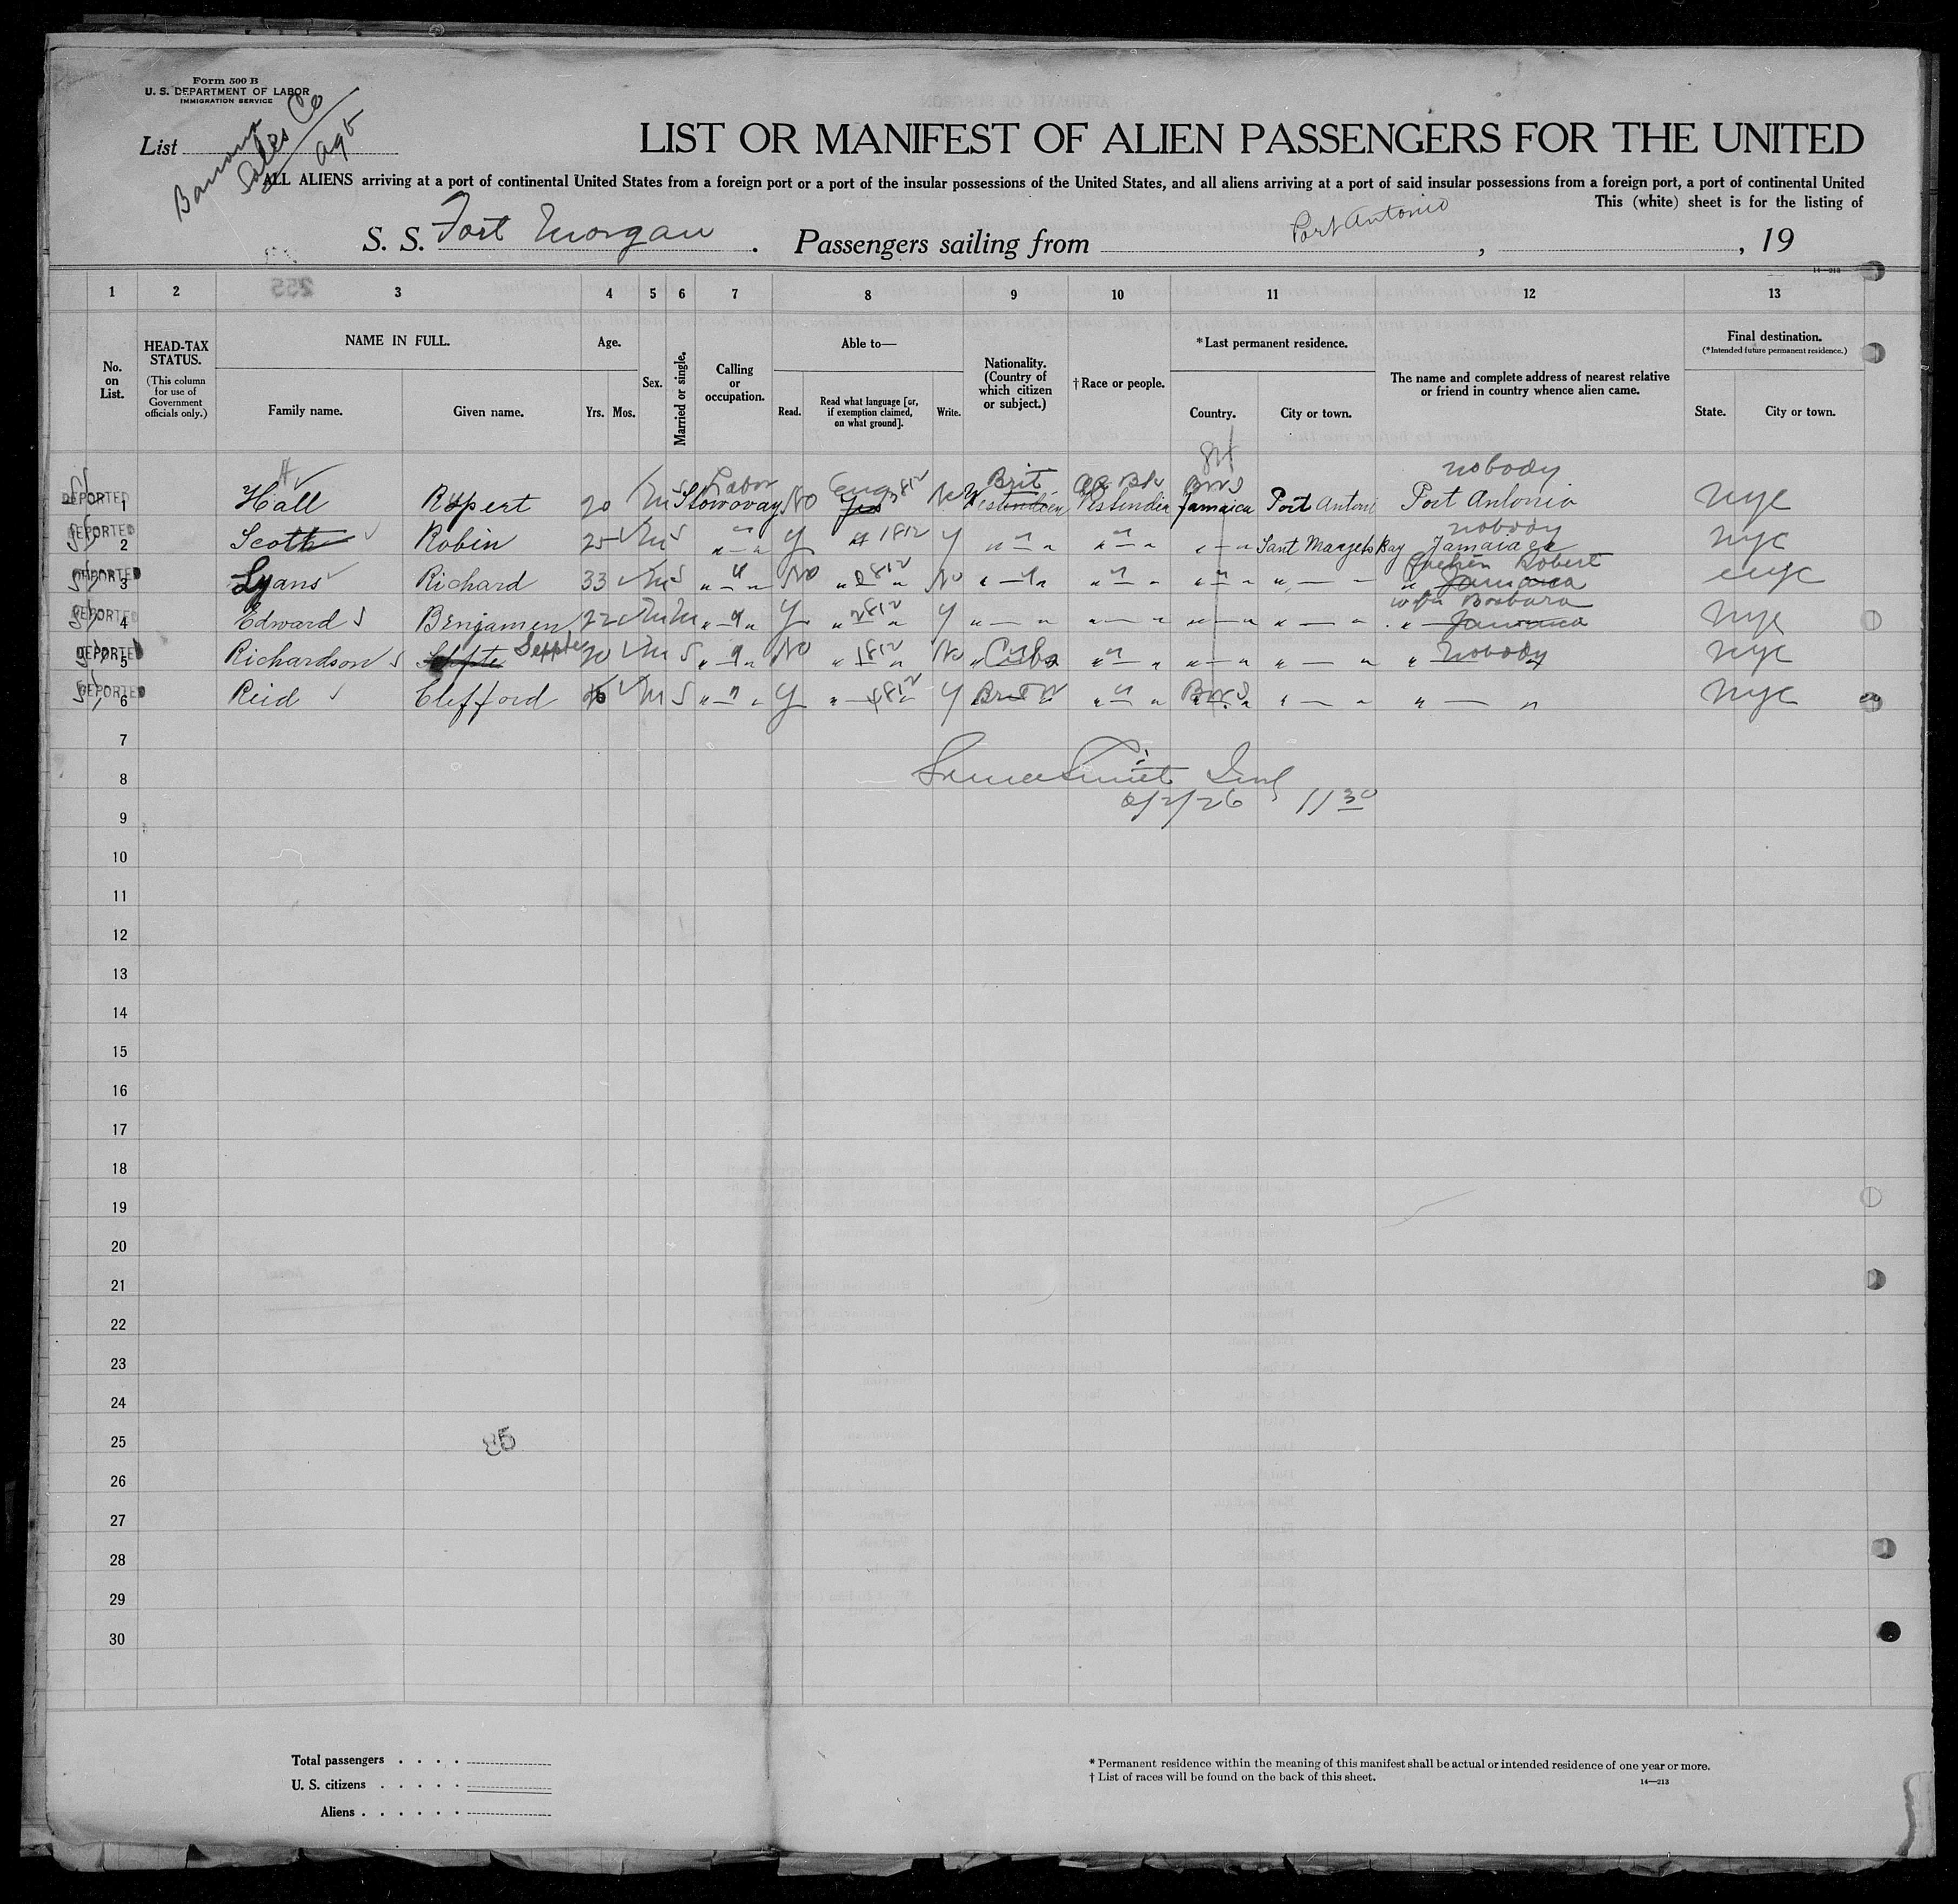 Form 500 B
U. S. DEPARTMENT OF LABOR
IMMIGRATION SERVICE
Banana
Sales Co
agt
List
LIST OR MANIFEST OF ALIEN PASSENGERS FOR THE UNITED
ALL ALIENS arriving at a port of continental United States from a foreign port or a port of the insular possessions of the United States, and all aliens arriving at a port of said insular possessions from a foreign port, a port of continental United
This (white) sheet is for the listing of
S. S. Fort Morgan . Passengers sailing from Port Antonio , , 19
14—213
255
1 2 3 4 5 6 7 8 9 10 11 12 13
No. on List.
HEAD-TAX STATUS.
(This column for use of Government officials only.)
NAME IN FULL.
Family name. Given name.
Age.
Yrs. Mos.
Sex.
Married or single.
Calling or occupation.
Able to—
Read. Read what language [or, if exemption claimed, on what ground]. Write.
Nationality. (Country of which citizen or subject.)
† Race or people.
* Last permanent residence.
Country. City or town.
The name and complete address of nearest relative or friend in country whence alien came.
Final destination.
(* Intended future permanent residence.)
State. City or town.
Labor Eng Brit Af. Bk BWI nobody
DEPORTED 1 Hall Rupert 20 M S Stowoway No Yes No Westindien Westindien Jamaica Port Antoni Port Antonio NYC
nobody
DEPORTED 2 Scott Robin 25 M S " — " Y " 1812 Y " — " " — " " — " Sant Margets Bay Jamaica NYC
Robert
DEPORTED 3 Lyans Richard 33 M S " — " No " 812 " No " — " " — " " — " " — " " Jamaica NYC
wife Barbara
DEPORTED 4 Edward Benjamen 22 M M " — " Y " 812 " Y " — " " — " " — " " — " " Jamaica NYC
DEPORTED 5 Richardson 20 M S " — " No " 1812 " No " Cuba " — " " — " " — " " Nobody NYC
DEPORTED 6 Reid Clefford M S " — " Y " 1812 Y Brit W " — " BWI " — " " — " NYC
7
8
2/2/26 11 30
9
10
11
12
13
14
15
16
17
18
19
20
21
22
23
24
25
85
26
27
28
29
30
Total passengers . . . .
U. S. citizens . . . . .
Aliens . . . . . .
* Permanent residence within the meaning of this manifest shall be actual or intended residence of one year or more.
† List of races will be found on the back of this sheet.
14—213